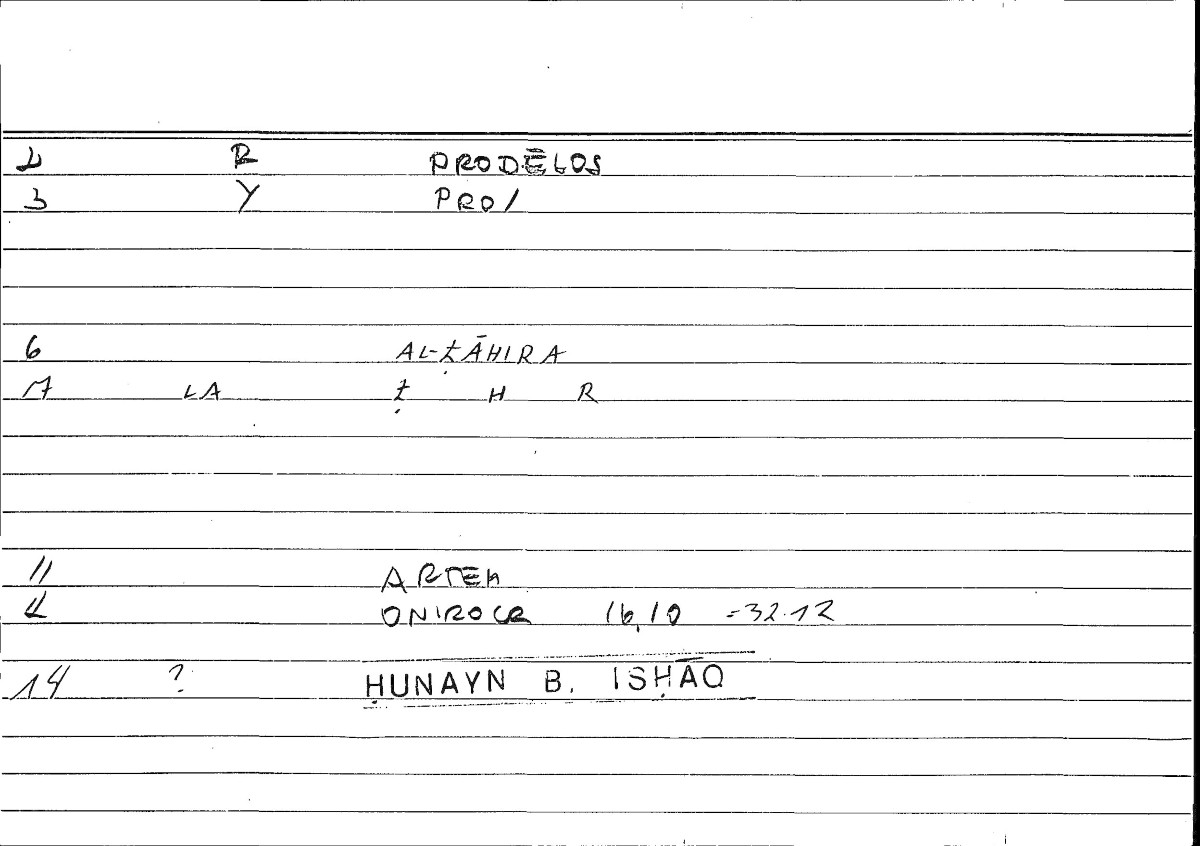 2 R PRODĒLOS
3 Y PRO/
6 AL-ẒĀHIRA
7 LA Ẓ H R
11 ARTEM
12 ONIROCR 16,10 =32.12
14 ? ḤUNAYN B. ISḤĀQ